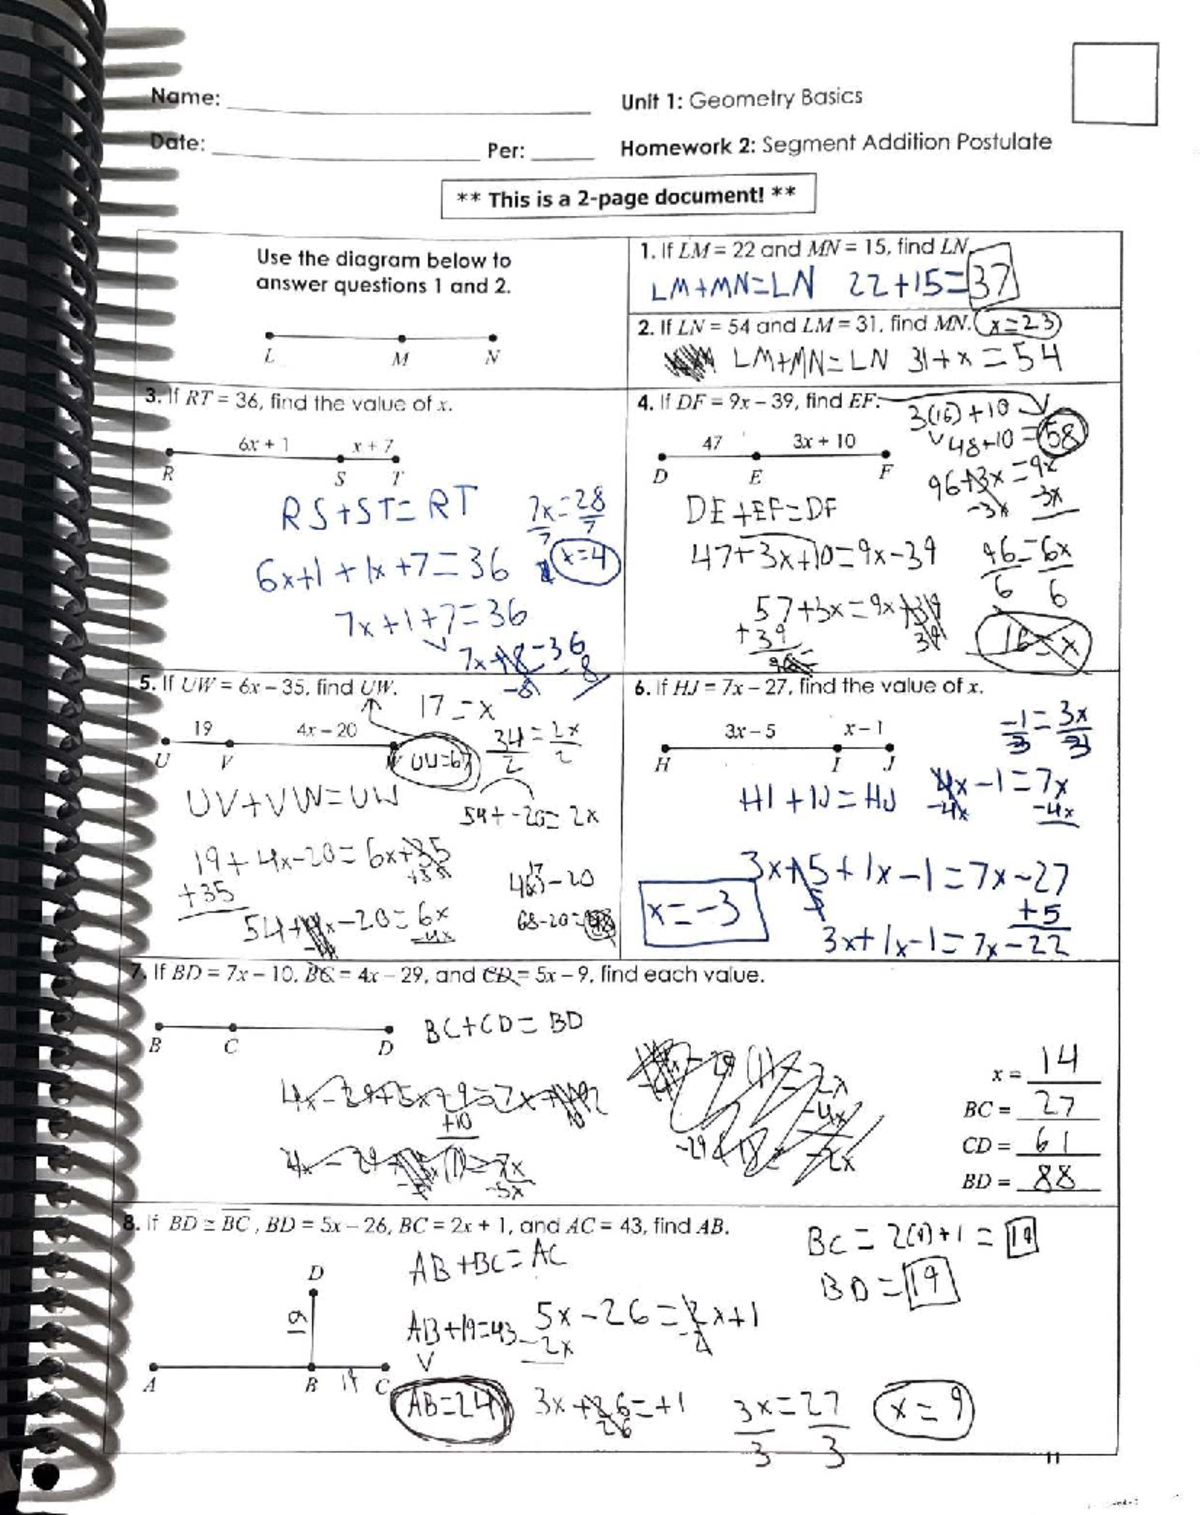 Name: Unit 1: Geometry Basics
Date: Per: Homework 2: Segment Addition Postulate
** This is a 2-page document! **
Use the diagram below to
answer questions 1 and 2.
L M N
1. If LM = 22 and MN = 15, find LN.
LM+MN=LN 22+15=37
2. If LN = 54 and LM = 31, find MN. x=23
LM+MN=LN 31+x=54
3. If RT = 36, find the value of x.
6x + 1 x + 7
R S T
RS+ST=RT
6x+1+1x+7=36
7x+1+7=36
7x+8=36
-8 8
7x=28
7 7
x=4
4. If DF = 9x – 39, find EF.
47 3x + 10
D E F
3(16)+10
48+10=58
DE+EF=DF
47+3x+10=9x-39
57+3x=9x+39
+39 39
96+3x=9x
-3x -3x
96=6x
6 6
16=x
5. If UW = 6x – 35, find UW.
19 4x – 20
U V
UV+VW=UW
19+4x-20=6x+35
+35 +35
54+4x-20=6x
-4x
54+-20=2x
34=2x
2 2
17=x
68-20=48
6. If HJ = 7x – 27, find the value of x.
3x – 5 x – 1
H I J
HI+IJ=HJ
3x+5+1x-1=7x-27
5 +5
3x+1x-1=7x-22
4x-1=7x
-4x -4x
-1=3x
3 3
x=-3
7. If BD = 7x – 10, BC = 4x – 29, and CD = 5x – 9, find each value.
B C D
BC+CD=BD
4x-29+5x-9=7x
+10
x = 14
BC = 27
CD = 61
BD = 88
8. If BD ≅ BC, BD = 5x – 26, BC = 2x + 1, and AC = 43, find AB.
D
19
A B 19 C
AB+BC=AC
AB+19=43
AB=24
5x-26=2x+1
-2x
3x+26=+1
26
3x=27
3 3
x=9
BC=2(9)+1=19
BD=19
11